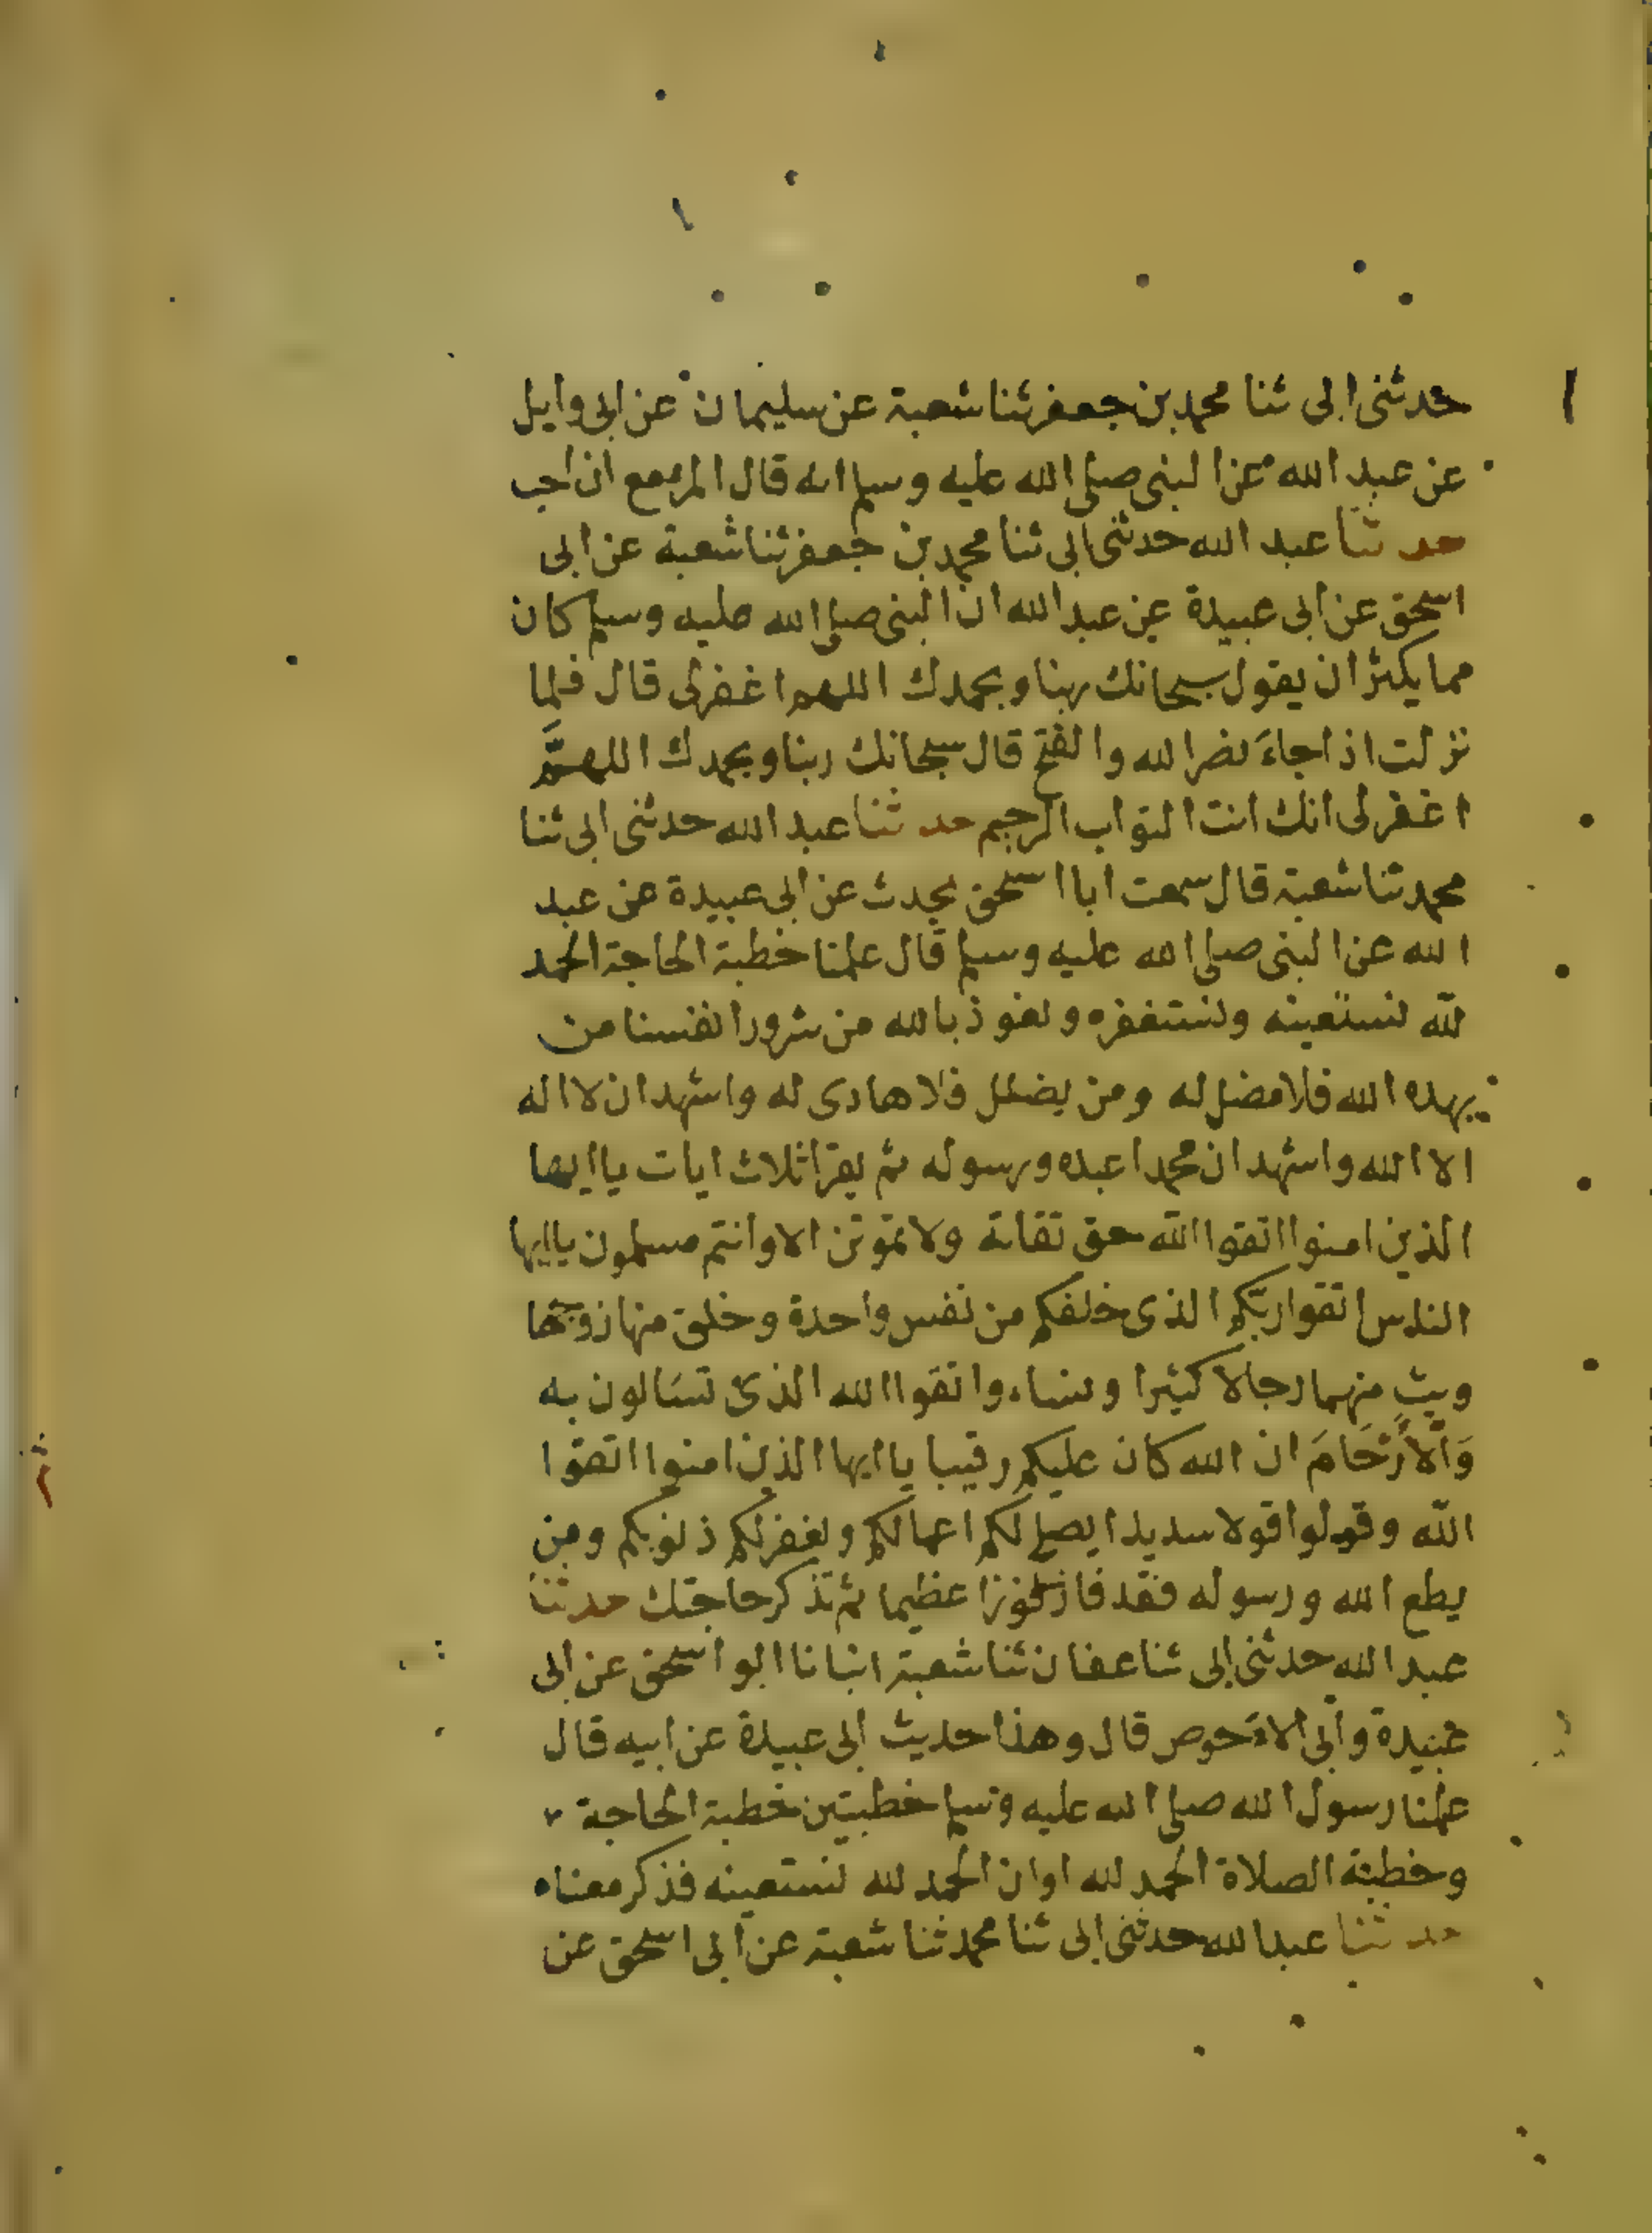 حدثنى ابى ثنا محمد بن جعفر ثنا شعبة عن سليمان عن ابى وايل
عن عبد الله عن النبى صلى الله عليه وسلم انه قال المرء مع من احب
حدثنا عبد الله حدثنى ابى ثنا محمد بن جعفر ثنا شعبة عن ابى
اسحق عن ابى عبيدة عن عبد الله ان النبى صلى الله عليه وسلم كان
مما يكثر ان يقول سبحانك ربنا وبحمدك اللهم اغفر لى قال فلما
نزلت اذا جاءَ نصر الله والفتح قال سبحانك ربنا وبحمدك اللهمَّ
اغفر لى انك انت التواب الرحيم حدثنا عبد الله حدثنى ابى ثنا
محمد ثنا شعبة قال سمعت ابا اسحق يحدث عن ابى عبيدة عن عبد
الله عن النبى صلى الله عليه وسلم قال علمنا خطبة الحاجة الحمد
لله نستعينه ونستغفره ونعوذ بالله من شرور انفسنا من
يهده الله فلا مضل له ومن يضلل فلا هادى له واشهد ان لا اله
الا الله واشهد ان محمدا عبده ورسوله ثم يقرا ثلاث ايات يا ايها
الذين امنوا اتقوا الله حق تقاته ولا تموتن الا وانتم مسلمون يا ايها
الناس اتقوا ربكم الذى خلقكم من نفس واحدة وخلق منها زوجها
وبث منهما رجالا كثيرا ونساء واتقوا الله الذى تسَالون به
وَالأرْحَامَ ان الله كان عليكم رقيبا يا ايها الذين امنوا اتقوا
الله وقولوا قولا سديدا يصلح لكم اعمالكم ويغفر لكم ذنوبكم ومن
يطع الله ورسوله فقد فاز فوزا عظيما ثم تذكر حاجتك حدثنا
عبد الله حدثنى ابى ثنا عفان ثنا شعبة انبانا ابو اسحق عن ابى
عبيدة وابى الاحوص قال وهذا حديث ابى عبيدة عن ابيه قال
علمنا رسول الله صلى الله عليه وسلم خطبتين خطبة الحاجة
وخطبة الصلاة الحمد لله او ان الحمد لله نستعينه فذكر معناه
حدثنا عبد الله حدثنى ابى ثنا محمد ثنا شعبة عن ابى اسحق عن